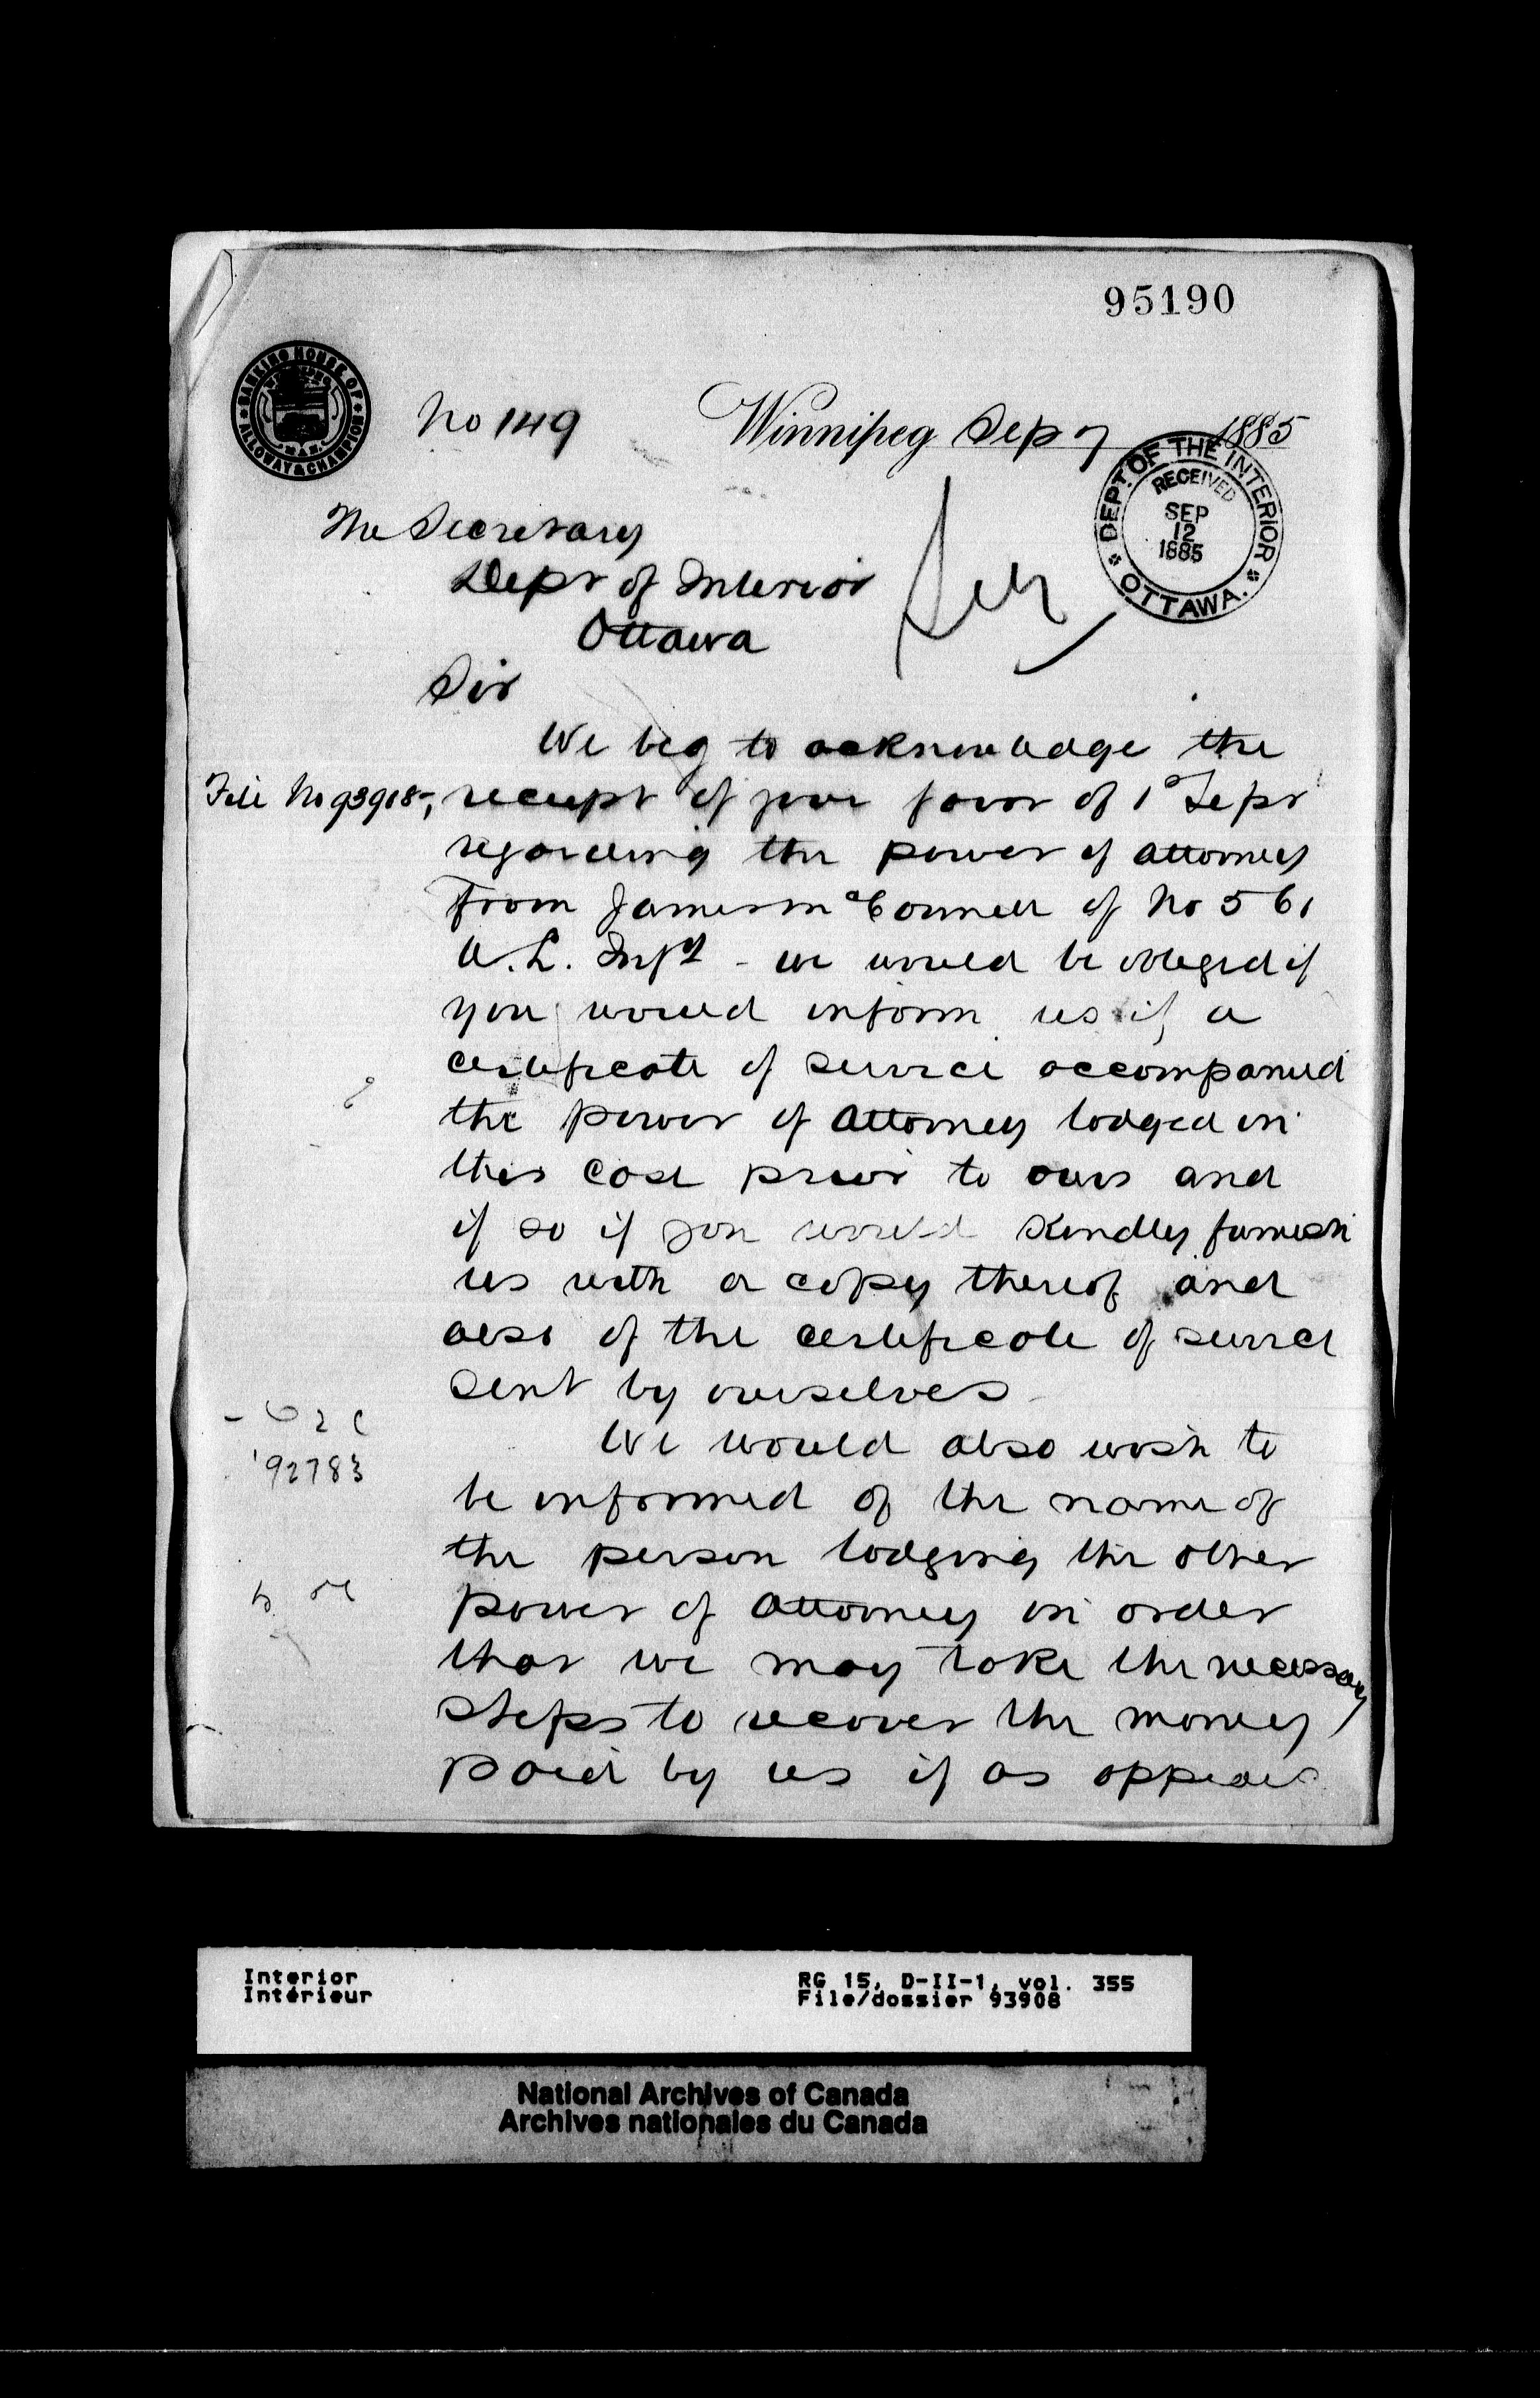 95190
BANKING HOUSE OF
ALLOWAY & CHAMPION
MAN.
No 149
Winnipeg Sep 7 1885
DEPT. OF THE INTERIOR
RECEIVED
SEP
12
1885
OTTAWA.
The Secretary
Dept of Interior
Ottawa
Sir
We beg to acknowledge the
File No 93908, receipt of your favor of 1st Sept
regarding the power of attorney
from James McConnell of No 561
W. L. Inft - we would be obliged if
you would inform us if a
certificate of service accompanied
the power of attorney lodged in
this case prior to ours and
if so if you would kindly furnish
us with a copy thereof and
also of the certificate of service
sent by ourselves
We would also wish to
92783
be informed of the name of
the person lodging the other
power of attorney in order
that we may take the necessary
steps to recover the money
paid by us if as appears
Interior
Intérieur
RG 15, D-II-1, vol. 355
File/dossier 93908
National Archives of Canada
Archives nationales du Canada